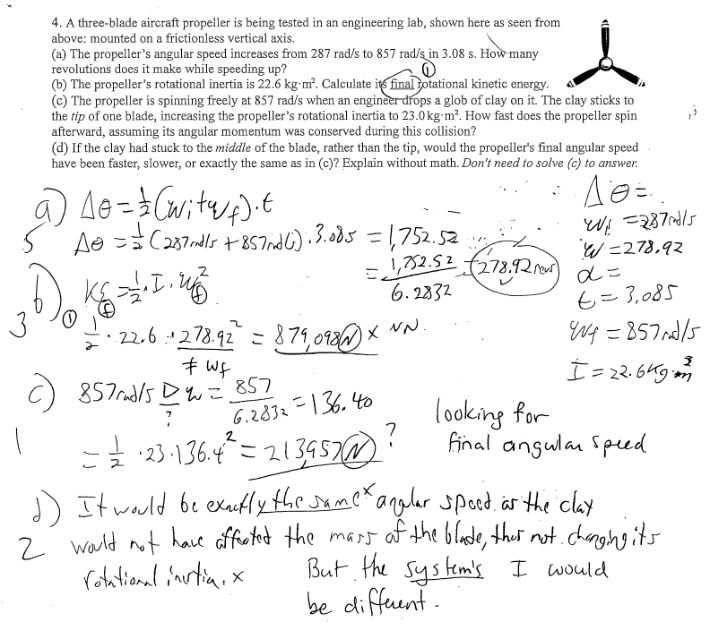 4. A three-blade aircraft propeller is being tested in an engineering lab, shown here as seen from
above: mounted on a frictionless vertical axis.
(a) The propeller's angular speed increases from 287 rad/s to 857 rad/s in 3.08 s. How many
revolutions does it make while speeding up?
(b) The propeller's rotational inertia is 22.6 kg·m². Calculate its final rotational kinetic energy.
(c) The propeller is spinning freely at 857 rad/s when an engineer drops a glob of clay on it. The clay sticks to
the tip of one blade, increasing the propeller's rotational inertia to 23.0 kg·m². How fast does the propeller spin
afterward, assuming its angular momentum was conserved during this collision?
(d) If the clay had stuck to the middle of the blade, rather than the tip, would the propeller's final angular speed
have been faster, slower, or exactly the same as in (c)? Explain without math. Don't need to solve (c) to answer.
a) Δθ = ½(wi+wf)·t
5 Δθ = ½(287rad/s + 857rad/s)·3.08s = 1,752.52
= 1,752.52 / 6.2832 = 278.92 rev
Δθ =
wi = 287rad/s
w = 278.92
α =
t = 3.08s
wf = 857rad/s
I = 22.6kg·m
b) KE = ½·I·wf²
3 ½ · 22.6 · 278.92² = 879,098 N × NN.
≠ wf
c) 857rad/s w = 857 / 6.2832 = 136.40
?
1 = ½ · 23 · 136.4² = 213957 N ?
looking for
final angular speed
d) It would be exactly the same × angular speed as the clay
2 would not have affected the mass of the blade, thus not changing its
rotational inertia. × But the system's I would
be different.